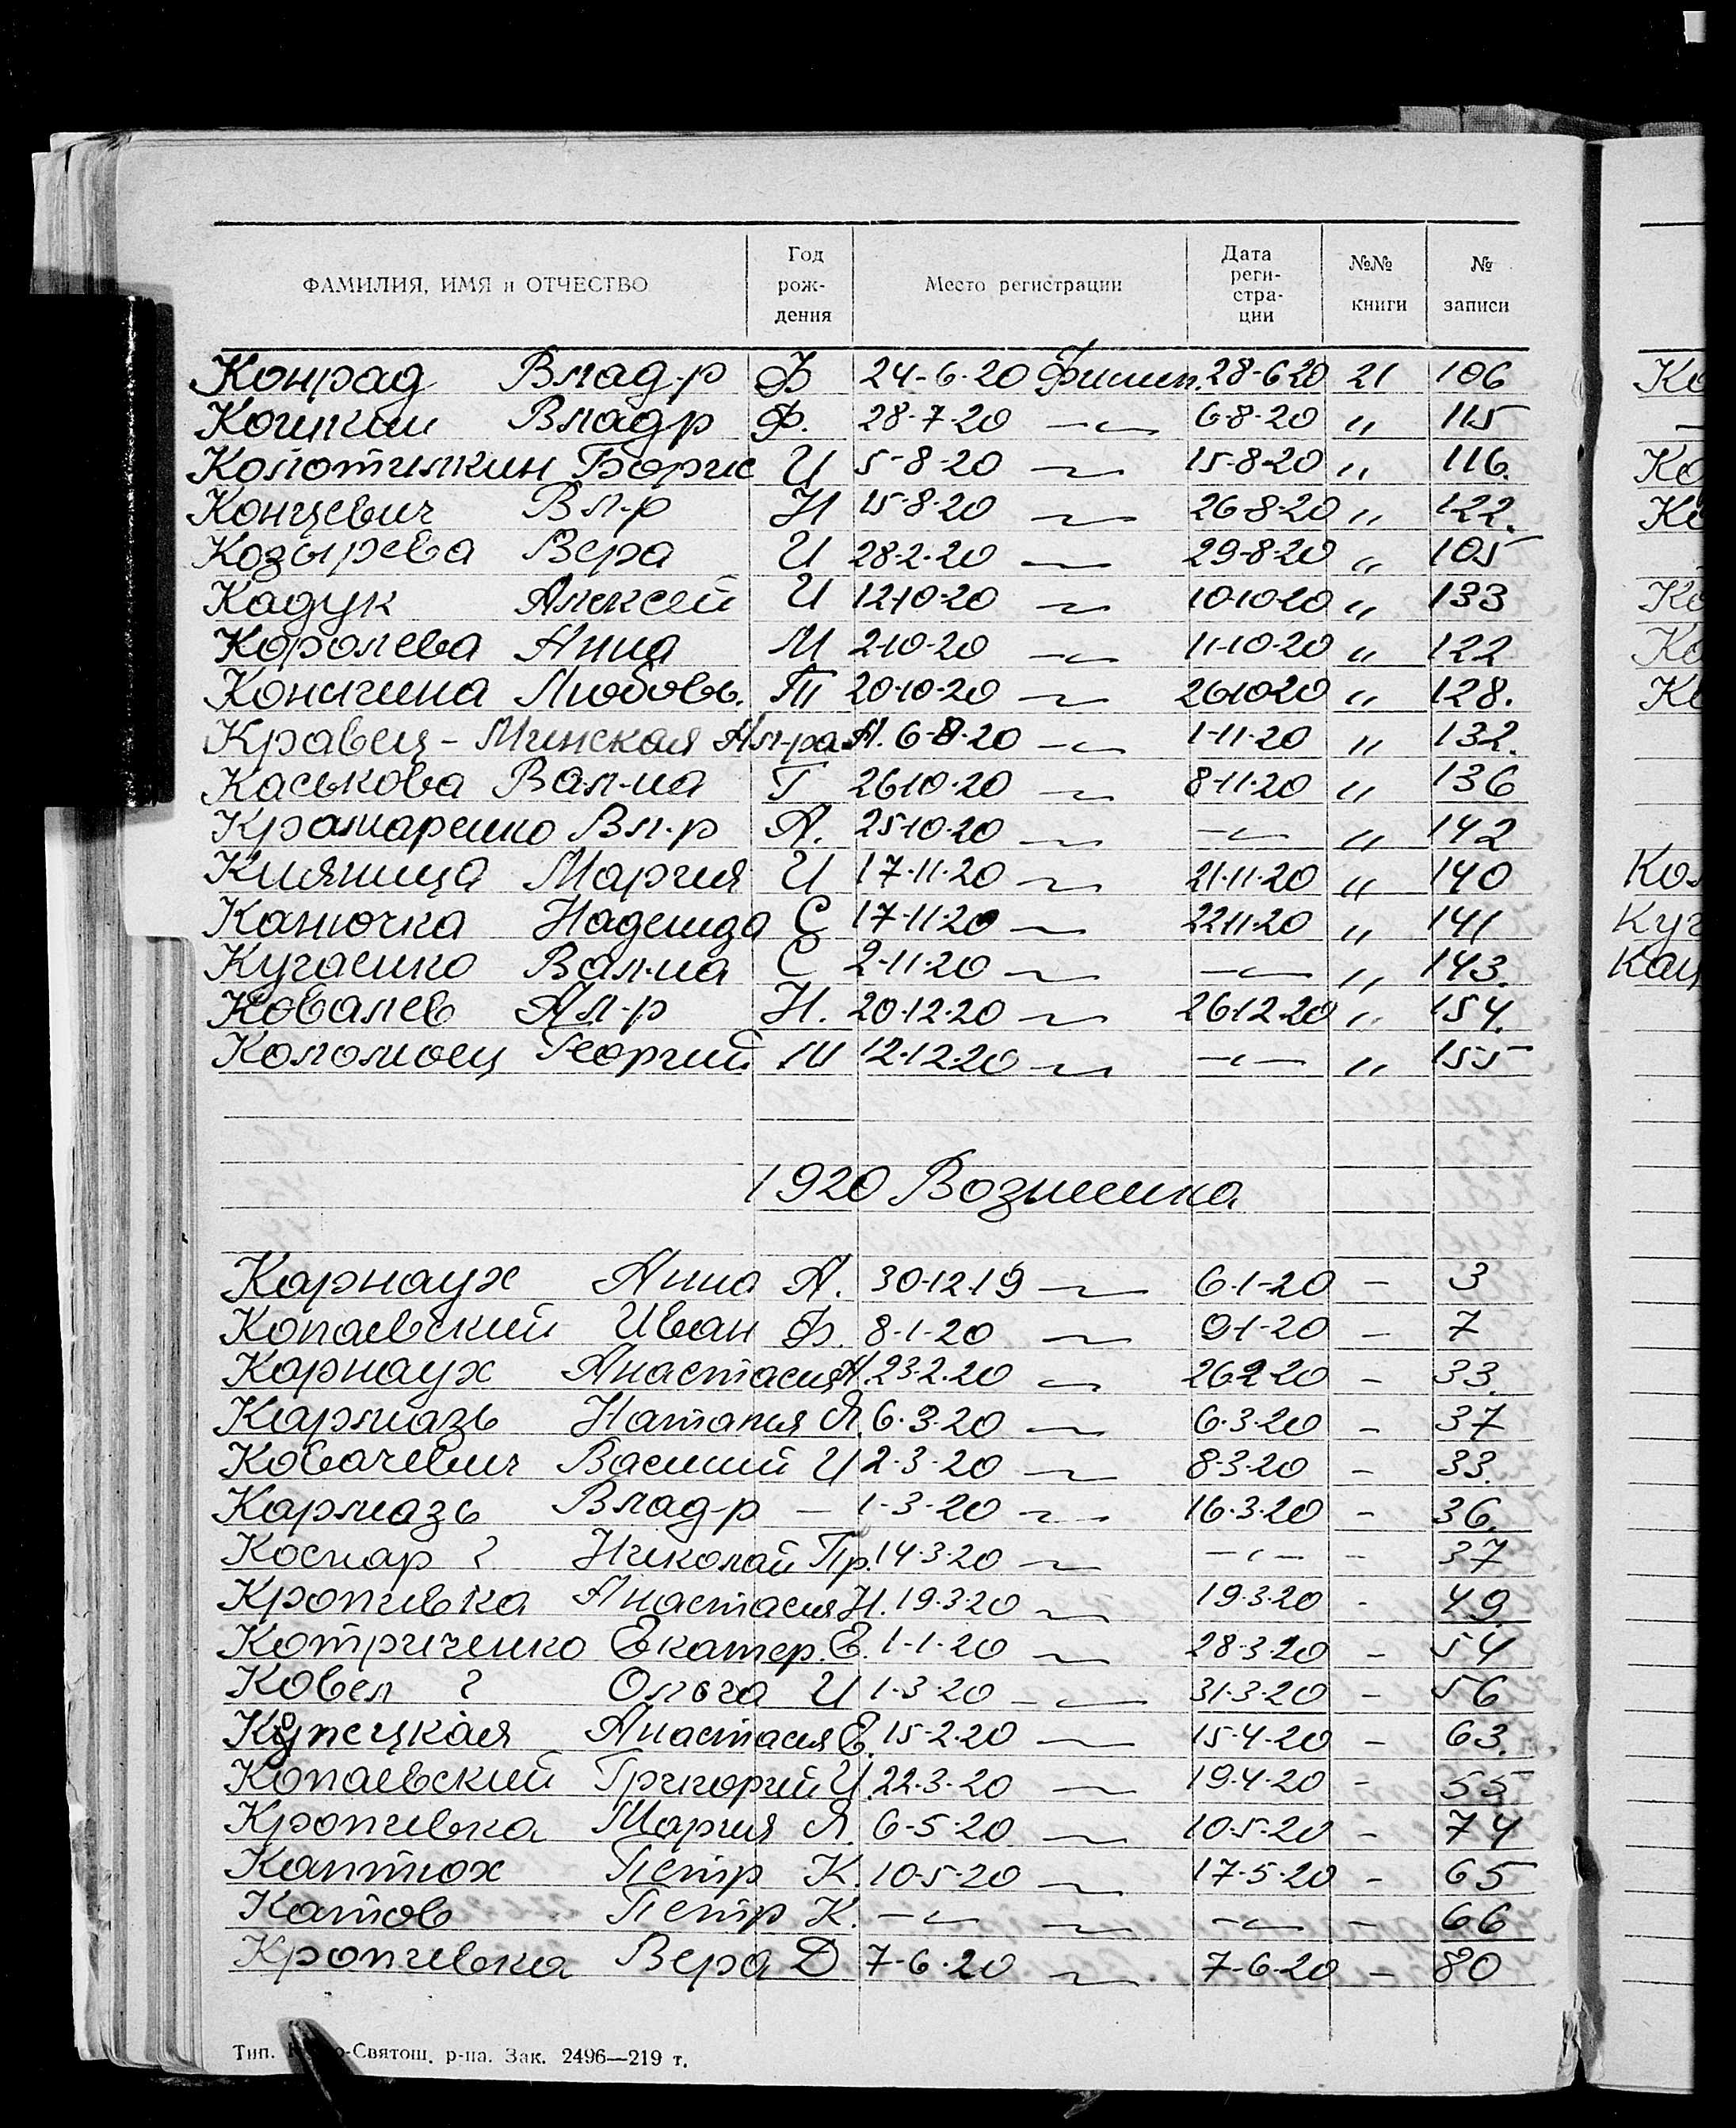 ФАМИЛИЯ, ИМЯ и ОТЧЕСТВО Год рож- дения Место регистрации Дата реги- стра- ции №№ книги № записи
Конрад Влад-р Ф 24-6-20 Филип. 28-6-20 21 106 Ко
Кошкин Владр Ф. 28-7-20 —"— 6-8-20 " 115 —
Колотилкин Борис И 5-8-20 —"— 15-8-20 " 116. Ко
Концевич Вл-р Н 15-8-20 —"— 26-8-20 " 122. Ко
Козырева Вера И 28-2-20 —"— 29-8-20 " 105
Кадук Алексей И 12-10-20 —"— 10-10-20 " 133 Ко
Королева Анна М 2-10-20 —"— 11-10-20 " 122 Ко
Конягина Любовь. Т 20-10-20 —"— 26-10-20 " 128. Ко
Кравец-Минская Ал-ра А. 6-8-20 —"— 1-11-20 " 132.
Каськова Вал-на Г 26-10-20 —"— 8-11-20 " 136
Крамаренко Вл-р А. 25-10-20 —"— —"— " 142
Княница Мария И 17-11-20 —"— 21-11-20 " 140 Кол
Канючка Надежда С 17-11-20 —"— 22-11-20 " 141 Куч
Кучаенко Вал-на С 2-11-20 —"— —"— " 143. Кац
Ковалев Ал-р Н. 20-12-20 —"— 26-12-20 " 154.
Коломоец Георгий М 12-12-20 —"— —"— " 155
1920
Карнаух Анна А. 30-12-19 —"— 6-1-20 — 3
Копаевский Иван Ф. 8-1-20 —"— 9-1-20 — 7
Карнаух Анастасия А. 23-2-20 —"— 26-2-20 — 33.
Кармазь Наталия Я. 6-3-20 —"— 6-3-20 — 37
Ковачевич Василий И 2-3-20 —"— 8-3-20 — 33.
Кармазь Влад-р — 1-3-20 —"— 16-3-20 — 36.
Коспар ? Николай Пр. 14-3-20 —"— —"— — 37
Кропивка Анастасия Н. 19-3-20 —"— 19-3-20 - 49
Котриченко Екатер. Е. 1-1-20 —"— 28-3-20 — 54
Ковел ? Ольга И 1-3-20 —"— 31-3-20 — 56
Купецкая Анастасия Е. 15-2-20 —"— 15-4-20 — 63.
Копаевский Григорий И. 22-3-20 —"— 19-4-20 - 55
Кропивка Мария Я. 6-5-20 —"— 10-5-20 — 74
Каптюх Петр К. 10-5-20 —"— 17-5-20 — 65
Катов Петр К. —"— —"— —"— — 66
Кропивка Вера Д 7-6-20 —"— 7-6-20 — 80
Тип. о-Святош. р-на. Зак. 2496—219 т.